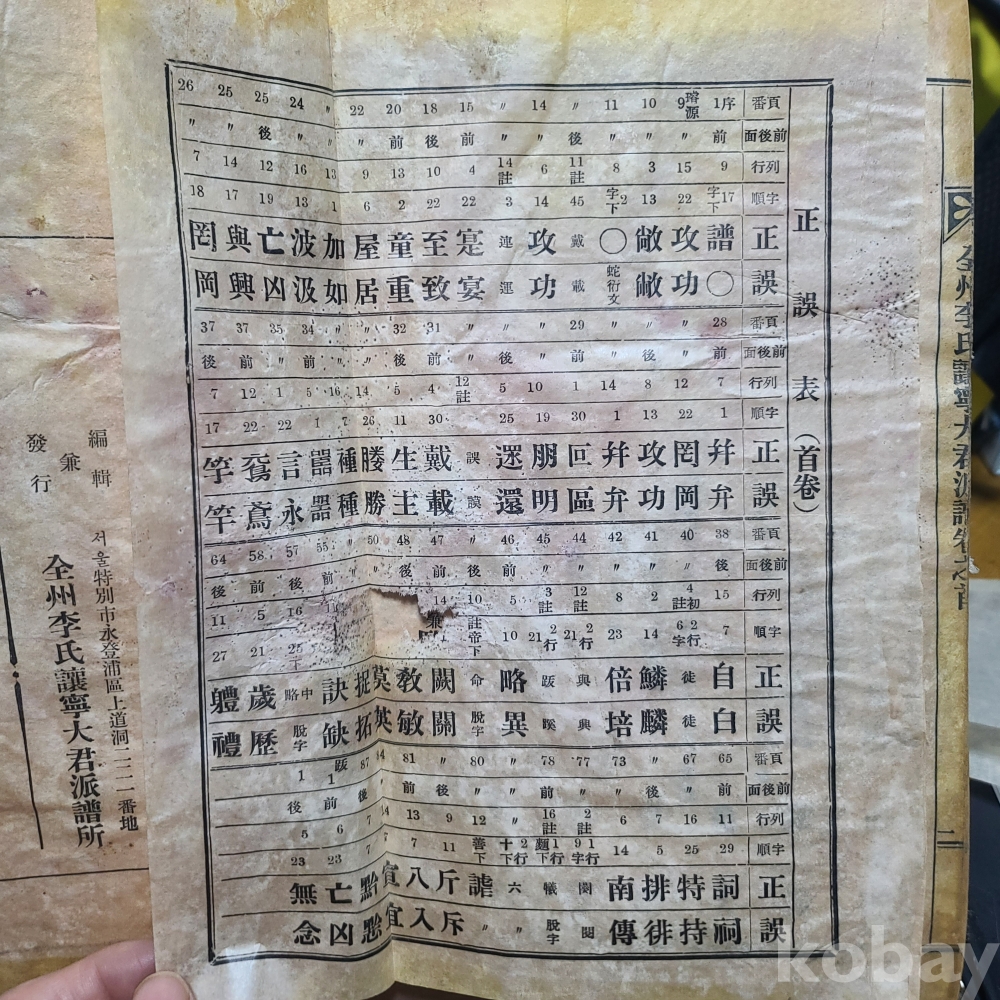 正誤表（首卷）
頁番 序1 璿源9 10 11 〃 14 〃 15 18 20 22 〃 24 25 25 26
前後面 前 〃 〃 〃 後 〃 〃 前 後 前 〃 〃 〃 後 〃 〃
列行 9 15 3 8 11註 6 14註 4 10 13 9 13 16 12 14 7
字順 17字下 22 13 2字下 45 14 3 22 22 2 6 1 13 19 17 18
正 譜 攻 敞 〇 戴 攻 連 寔 至 童 屋 加 波 亡 與 罔
誤 〇 功 敝 蛇衍文 載 功 運 宴 致 重 居 如 汲 凶 興 岡
頁番 28 〃 〃 〃 29 〃 〃 〃 31 32 〃 〃 34 35 37 37
前後面 前 〃 後 〃 前 後 〃 〃 前 後 〃 〃 前 〃 〃 後
列行 7 12 8 14 1 10 5 12註 4 5 14 16 5 1 12 7
字順 1 22 13 1 30 19 25 30 11 26 7 1 22 22 17
正 幷 罔 攻 幷 叵 朋 還 誤 戴 生 勝 種 囂 言 竽
誤 弁 岡 功 弁 區 明 還 謨 載 主 勝 種 器 永 鳶 竿
頁番 38 40 41 42 44 45 46 〃 47 48 50 〃 55 57 58 64
前後面 後 〃 〃 〃 〃 〃 前 後 前 後 〃 前 後 前 後
列行 15 4初註 2 8 12註 3註 5 10 14 11 16 5 11
字順 7 2行6字 14 23 2行21 2行21 10 註帝下 21 27
正 自 徒 鱗 倍 與 跋 略 命 闕 敎 莫 捉 訣 中略 歲 軆
誤 白 徒 麟 培 興 蹊 異 脫字 關 敏 英 拓 缺 脫字 歷 禮
頁番 65 67 〃 73 77 78 〃 80 〃 81 87 跋1 1
前後面 前 〃 後 〃 〃 前 〃 〃 後 前 後 前 後
列行 11 16 7 6 2註 16註 〃 12 9 13 7 6 5
字順 29 25 5 14 1行9字 1行 2行十下 善下 11 7 7 23 23
正 詞 特 排 南 閔 犧 六 謔 斤 八 宜 黔 亡 無
誤 祠 持 徘 傳 閔 脫字 〃 〃 斥 入 宜 凶 念
全州李氏讓寧大君派譜卷之首
二
編輯兼發行
서울特別市永登浦區上道洞二二一番地
全州李氏讓寧大君派譜所
kobay